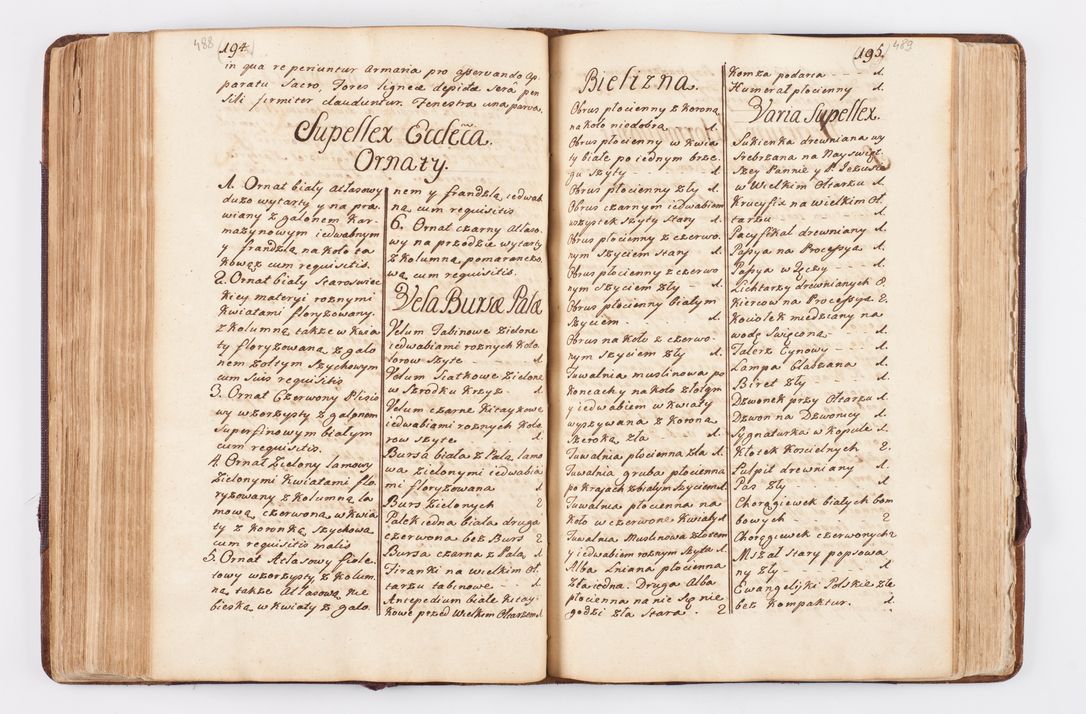 488
194.
in qua reperiuntur Armaria pro gservando Ap
paratu Sacro. Fores ligneæ depictæ Serâ pen
sili firmiter clauduntur. Fenestra una parva.
Supellex Eccleса.
Ornaty.
1. Ornat biały Atłasowy
dużo wytarty y na pra
wiany z galonem Kar
mazynowym iedwabnym
y frandzlą na koło ta
kowęz cum requisitis.
2. Ornat biały Staroswiec
kiey materyi roznymi
Kwiatami floryzowany.
z Kolumną także w kwia
ty floryzowaną z galo
nem żołtym Szychowym
cum suis requisitis
3. Ornat Czerwony Plisio
wy wzorzysty z galonem
Superfinowym białym
cum requisitis.
4. Ornat Zielony lamowy
Zielonymi Kwiatami flo
ryzowany z Kolumną la
mową czerwoną w kwia
ty z koronką Szychową
cum requisitis malis
5. Ornat Atłasowy fiole
towy wzorzysty z kolum
ną także Atłasową nie
bieską w kwiaty z galo
nem y frandzlą iedwab
ną cum requisitis
6. Ornat czarny Atłaso
wy na przodzie wytarty
z Kolumną pomaranczo
wą cum requisitis.
Vela Bursæ Palæ
Velum Tabinowe Zielone
iedwabiami roznych Kolo
lorow Szyte 1.
Velum Siatkowe Zielone
w Szrodku Krzyż 1.
Velum czarne Kitaykowe
iedwabiami roznych Kolo
row Szyte 1.
Bursa biała z Palą lamo
wa Zielonymi iedwabia
mi floryzowana 1
Burs Zielonych 2
Palek iedna biała druga
czerwona bez Burs 2
Bursa czarna z Palą 1.
Firanki na wielkim Oł
tarzu tabinowe 1
Antepedium białe Kitay-
kowe przed Wielkim Ołtarzem 1
489
195.
Bielizna.
Obrus płocienny z Koroną
na koło niedobrą 1.
Obrus płocienny w kwia
ty białe po iednym brze.
gu Szyty 1.
Obrus płocienny zły 1.
Obrus czarnym iedwabiem
wszystek Szyty Stary 1.
Obrus płocienny z czerwo.
nym Szyciem Stary 1.
Obrus płocienny z czerwo
nym Szyciem zły 1.
Obrus płocienny białym
Szyciem 1.
Obrus na koło z czerwo.
nym Szyciem zły 1.
Tuwalnia muslinowa po
koncach y na koło złotem
y iedwabiem w kwiaty
wyszywana z koroną
Szeroką zła 1.
Tuwalnia płocienna zła 1.
Tuwalnia gruba płocienna
po krajach z białym Szyciem 1.
Tuwalnia płocienna na
koło w czerwone Kwiaty 1.
Tuwalnia Muslinowa złotem
y iedwabiem roznym Szyta 1.
Alba Lniana płocienna
zła iedna. Druga Alba
płocienna na nic Się nie
godzi zła Stara 2
Komza podarta 1.
Humerał płocienny 1.
Varia Supellex.
Sukienka drewniana wy
Srebrzana na Nayswięt
Szey Pannie y P. Jezusie
w Wielkim Ołtarzu 1.
Krucyfix na wielkim Oł.
tarzu 1.
Pacyfikał drewniany 1.
Passya na Processyą 1.
Passya w Ręczy 1.
Lichtarzy drewnianych 8.
Kiercow na Processye 2.
Kociołek miedziany na
wodę Swięconą 1.
Talerz Cynowy 1.
Lampa blaszana 1.
Biret zły 1.
Dzwonek przy Ołtarzu 1.
Dzwon na Dzwonicy 1.
Sygnaturka w Kopule 1.
Kłotek Koscielnych 2.
Pulpit drewniany 1.
Pas zły 1.
Chorągiewek białych bom
bowych 2
Chorągiewek czerwonych 2
Mszał Stary popsowa
ny zły 1.
Ewangelijki Polskie złe
bez Kompaktur. 1.